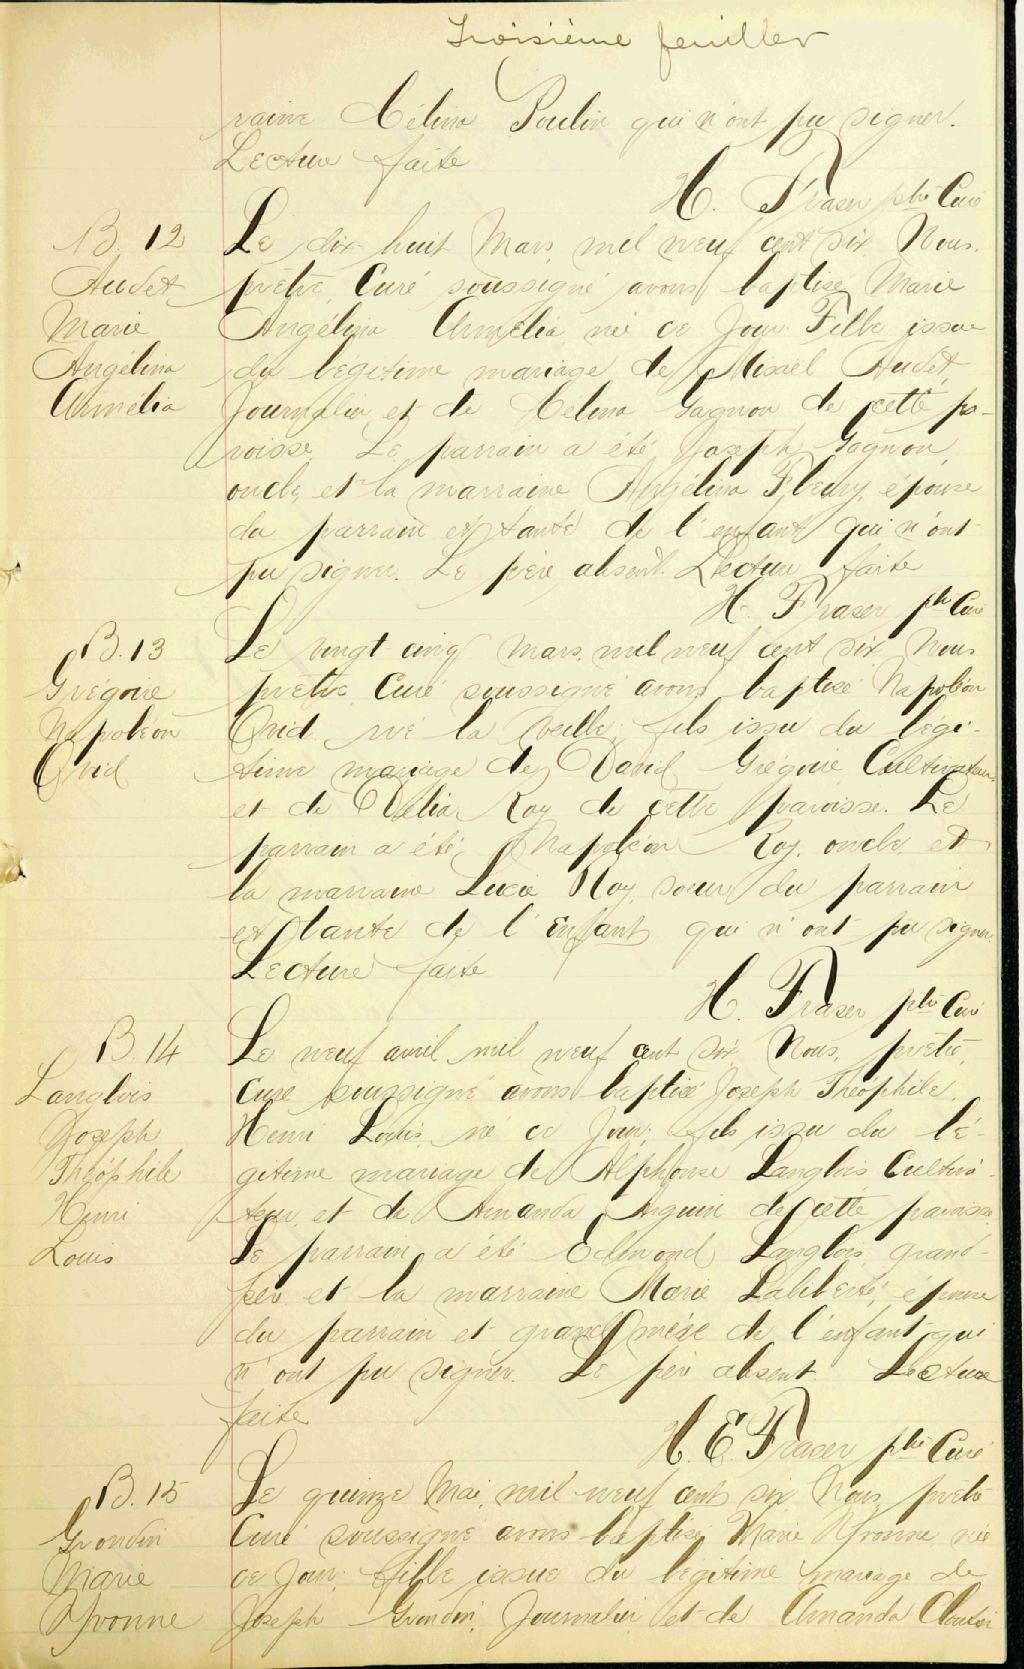 Troisième feuillet
raine Célina Poulin qui n'ont pu signer.
Lecture faite
H. Fraser ptre Curé
B. 12
Audet
Marie
Angélina
Armélia
Le dix huit Mars, mil neuf cent six Nous,
prêtre, Curé soussigné avons baptisé Marie
Angélina Armélia, né ce Jour Fille issue
du légitime mariage de Misaël Audet,
Journalier et de Célina Gagnon de cette pa-
roisse. Le parrain a été Joseph Gagnon,
oncle, et la marraine Angélina Fleury, épouse
du parrain et tante de l'enfant qui n'ont
pu signer. Le père absent. Lecture faite
H. Fraser ptre Curé
B. 13
Grégoire
Napoléon
Ovid
Le vingt cinq Mars, mil neuf cent six Nous
prêtre, Curé soussigné avons baptisé Napoléon
Ovid né la veille, fils issu du légi-
time mariage de David Grégoire Cultivateur
et de Délia Roy de cette paroisse. Le
parrain a été Napoléon Roy, oncle, et
la marraine Lucie Roy, soeur du parrain
et tante de l'enfant qui n'ont pu signer.
Lecture faite
H. Fraser ptre Curé
B. 14
Langlois
Joseph
Théophile
Henri
Louis
Le neuf avril mil neuf cent six Nous, prêtre,
Curé soussigné avons baptisé Joseph Théophile,
Henri Louis, né ce Jour, fils issu du lé-
gitime mariage de Alphonse Langlois Cultiva-
teur, et de Amanda Anguin de cette paroisse.
Le parrain a été Edmond Langlois, grand-
père et la marraine Marie Laliberté, épouse
du parrain et grand mère de l'enfant qui
n'ont pu signer. Le père absent. Lecture
faite
H. E. Fraser ptre Curé
B. 15
Grondin
Marie
Yvonne
Le quinze Mai, mil-neuf cent six, Nous, prêtre
Curé soussigné avons baptisé Marie Yvonne, née
ce Jour, fille issue du légitime mariage de
Joseph Grondin, Journalier et de Amanda Cloutier